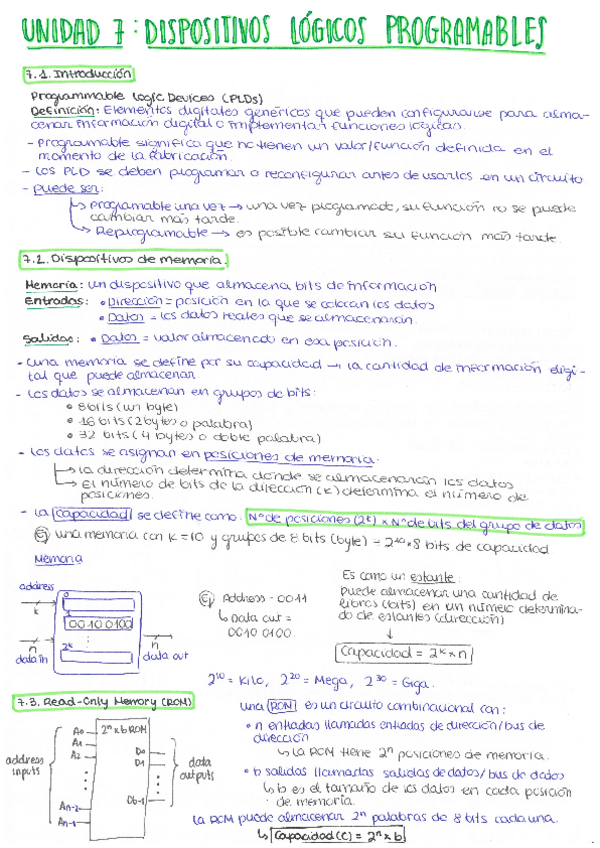 UNIDAD 7: DISPOSITIVOS LÓGICOS PROGRAMABLES
7.1. Introducción
Programmable Logic Devices (PLDs)
Definición: Elementos digitales genéricos que pueden configurarse para alma-
cenar información digital o implementar funciones lógicas.
- Programable significa que no tienen un valor/función definida en el
momento de la fabricación.
- Los PLD se deben programar o reconfigurar antes de usarlos en un circuito
- Puede ser:
↳ Programable una vez → una vez programado, su función no se puede
cambiar más tarde.
↳ Reprogramable → es posible cambiar su función más tarde.
7.2. Dispositivos de memoria.
Memoria: un dispositivo que almacena bits de información
Entradas: • Dirección = posición en la que se colocan los datos
• Datos = los datos reales que se almacenarán.
Salidas: • Datos = valor almacenado en esa posición.
- Una memoria se define por su capacidad → la cantidad de información digi-
tal que puede almacenar.
- Los datos se almacenan en grupos de bits:
• 8 bits (un byte)
• 16 bits (2 bytes o palabra)
• 32 bits (4 bytes o doble palabra)
- Los datos se asignan en posiciones de memoria.
↳ la dirección determina dónde se almacenarán los datos
↳ el número de bits de la dirección (k) determina el número de
posiciones.
- La capacidad se define como: Nº de posiciones (2ᵏ) x Nº de bits del grupo de datos
Ej una memoria con k = 10 y grupos de 8 bits (byte) = 2¹⁰ x 8 bits de capacidad
Memoria
address
k
0
1
0010 0100
2ᵏ
n
data in
n
data out
Ej Address - 0011
↳ Data out =
0010 0100.
Es como un estante:
Puede almacenar una cantidad de
libros (bits) en un número determina-
do de estantes (dirección)
↓
Capacidad = 2ᵏ x n
2¹⁰ = Kilo, 2²⁰ = Mega, 2³⁰ = Giga.
7.3. Read-Only Memory (ROM)
address
inputs
A0
A1
A2
An-2
An-1
2ⁿ x b ROM
D0
D1
Db-1
data
outputs
Una ROM es un circuito combinacional con:
• n entradas llamadas entradas de dirección/bus de
dirección
↳ La ROM tiene 2ⁿ posiciones de memoria.
• b salidas llamadas salidas de datos/bus de datos
↳ b es el tamaño de los datos en cada posición
de memoria.
La ROM puede almacenar 2ⁿ palabras de 8 bits cada una.
↳ Capacidad (C) = 2ⁿ x b